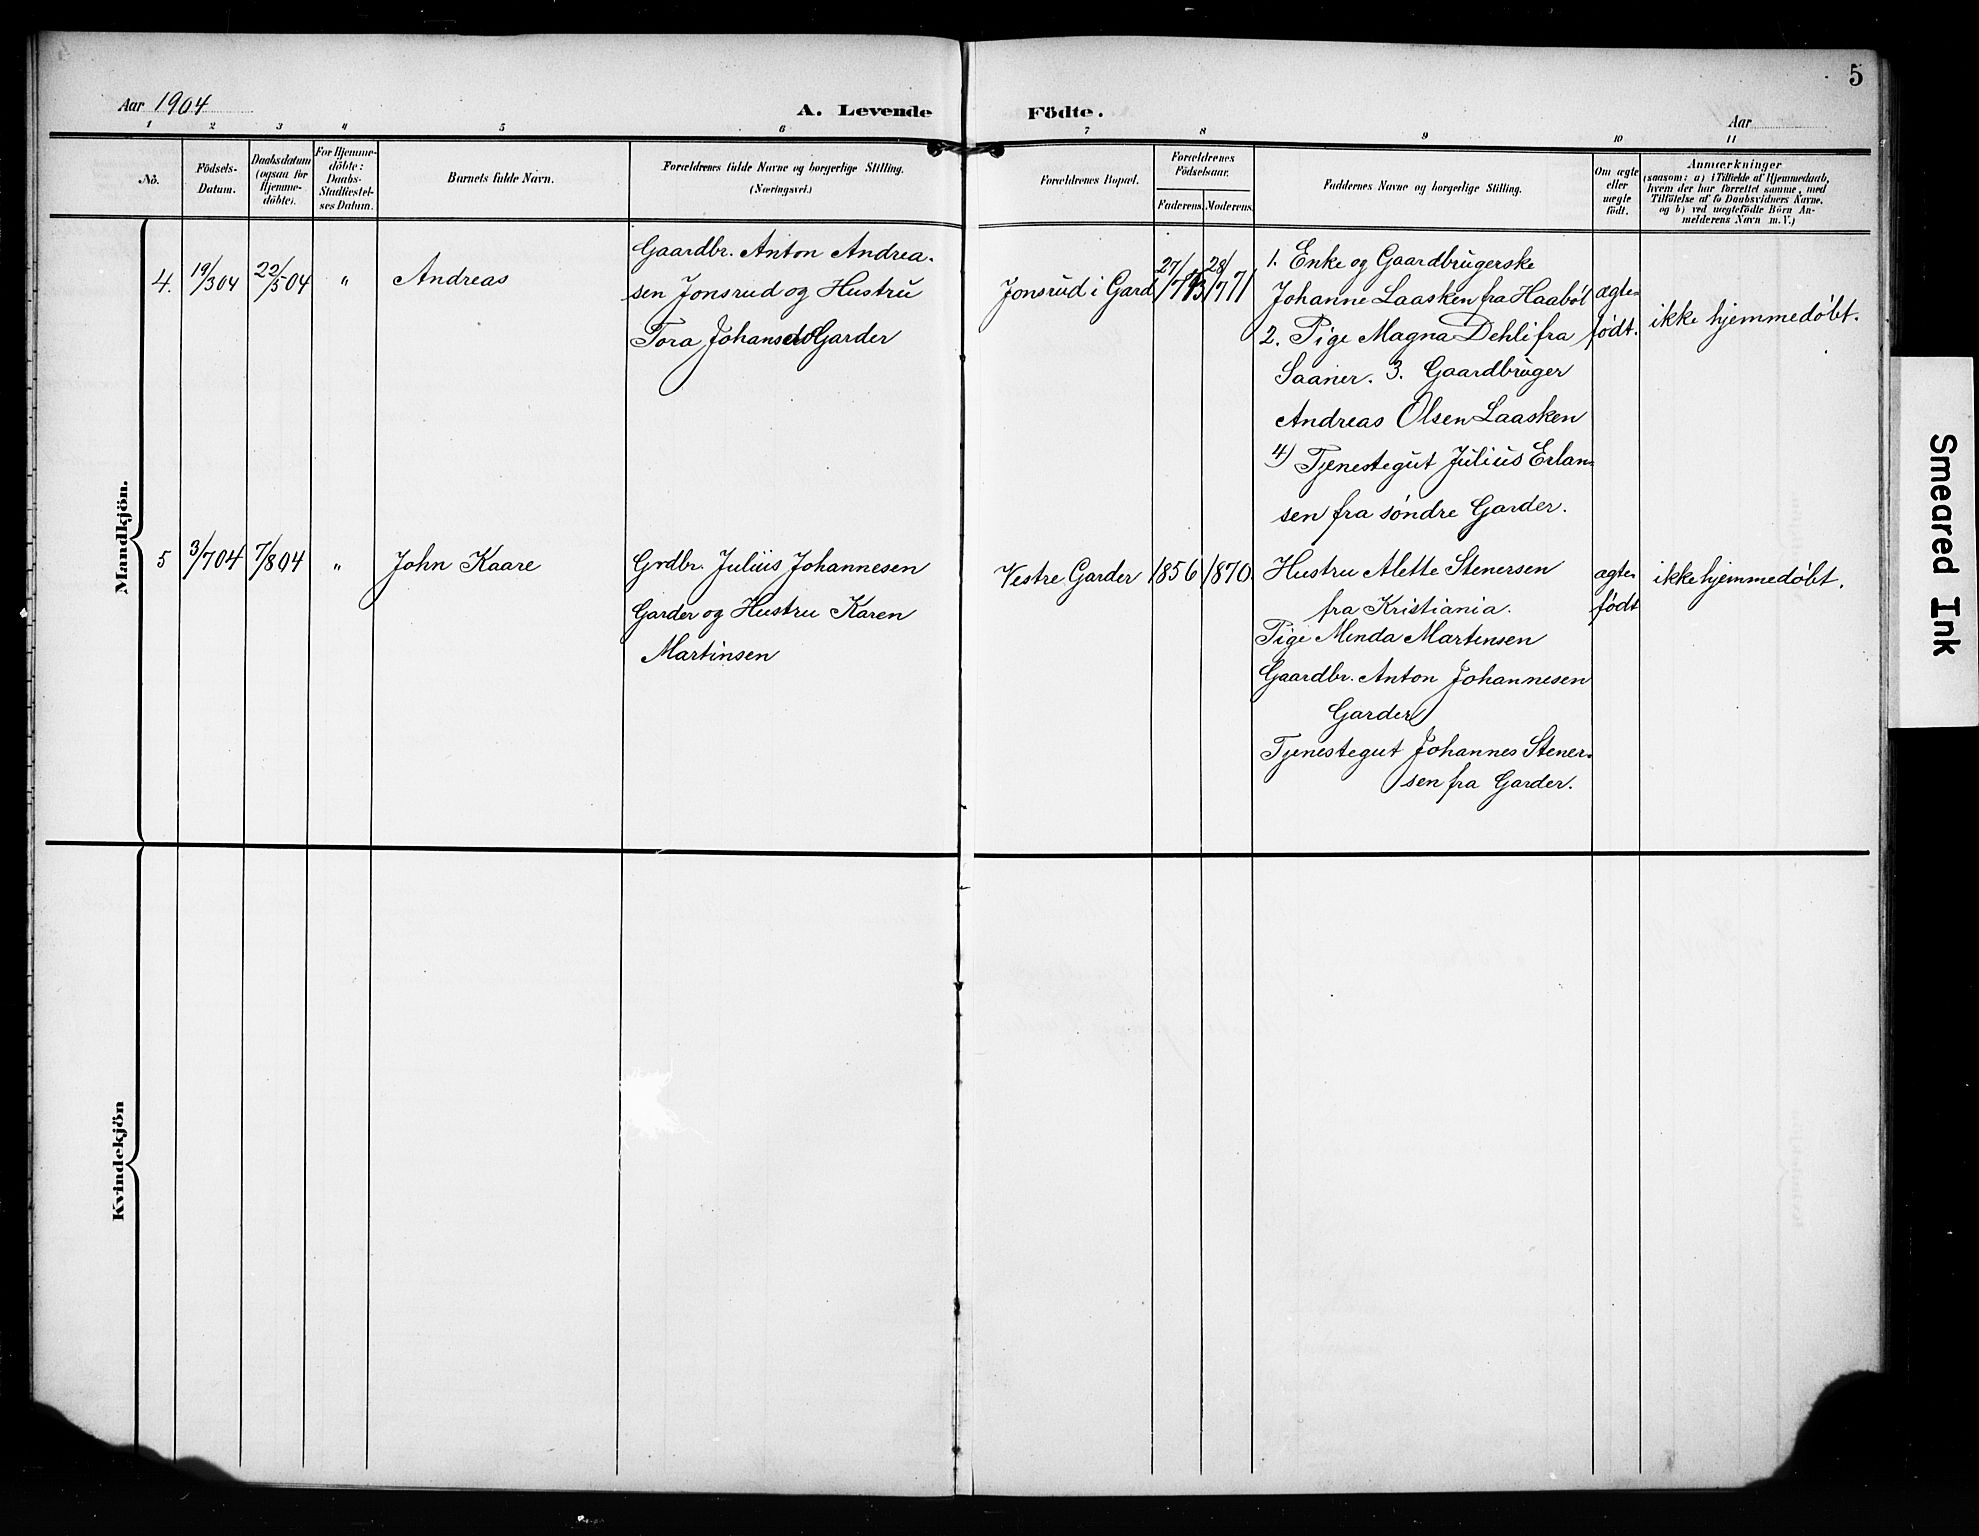 5
Aar 1904
A. Levende
Födte.
Aar
1 2 3 4 5 6 7 8 9 10 11
No.
Födsels-
Datum.
Daabsdatum
(ogsaa for
Hjemme-
döbte).
For Hjemme-
döbte:
Daabs-
Stadfæstel-
ses Datum.
Barnets fulde Navn.
Forældrenes fulde Navne og borgerlige Stilling.
(Næringsvei.)
Forældrenes Bopæl.
Forældrenes
Födselsaar.
Faderens. Moderens.
Faddernes Navne og borgerlige Stilling.
Om ægte
eller
uægte
födt.
Anmærkninger
(saasom: a) i Tilfælde af Hjemmedaab,
hvem der har forrettet samme, med
Tilföielse af to Daabsvidners Navne.
og b) ved uægtefödte Börn An-
melderens Navn m.V.)
Mandkjön.
4.
19/3 04
22/5 04
"
Andreas
Gaardbr. Anton Andrea-
sen Jonsrud og Hustru
Tora Johansen Garder
Jonsrud i Gard
28/7 71
1. Enke og Gaardbrugerske
Johanne Laasken fra Haabøl
2. Pige Magna Dehli fra
Saaner. 3. Gaardbruger
Andreas Olsen Laasken
4) Tjenestegut Julius Erlan-
sen fra søndre Garder.
ægte-
født.
ikke hjemmedøbt.
5
3/7 04
7/8 04
"
John Kaare
Grdbr. Julius Johannesen
Garder og Hustru Karen
Martinsen
Vestre Garder
1856
1870.
Hustru Alette Stenersen
fra Kristiania.
Pige Minda Martinsen
Gaardbr. Anton Johannesen
Garder
Tjenestegut Johannes Stener-
sen fra Garder.
ægte-
født
ikke hjemmedøbt.
Kvindekjön
Smeared Ink